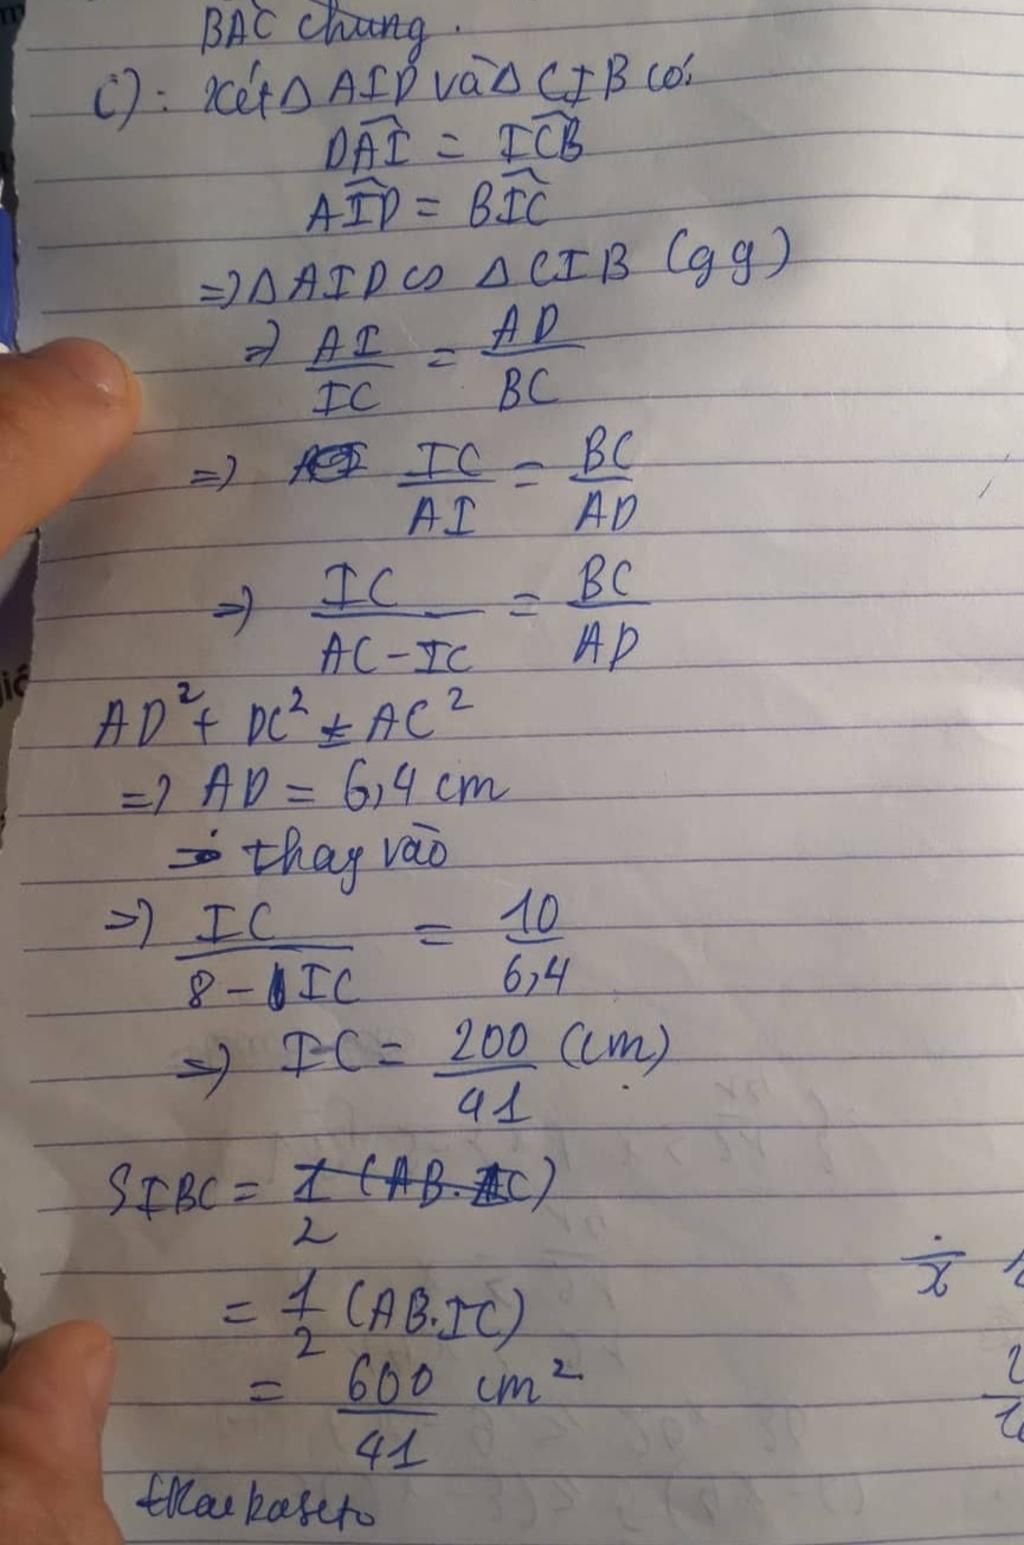 BAC chung.
c): Xét Δ AID và Δ CIB có:
DÂI = IĈB
AÎD = BÎC
=> Δ AID ∽ Δ CIB (gg)
=> AI/IC = AD/BC
=> IC/AI = BC/AD
=> IC/(AC-IC) = BC/AD
AD² + DC² = AC²
=> AD = 6,4 cm
thay vào
=> IC/(8-IC) = 10/6,4
=> IC = 200/41 (cm)
SIBC = 1/2 (AB.IC)
= 1/2 (AB.IC)
= 600/41 cm²